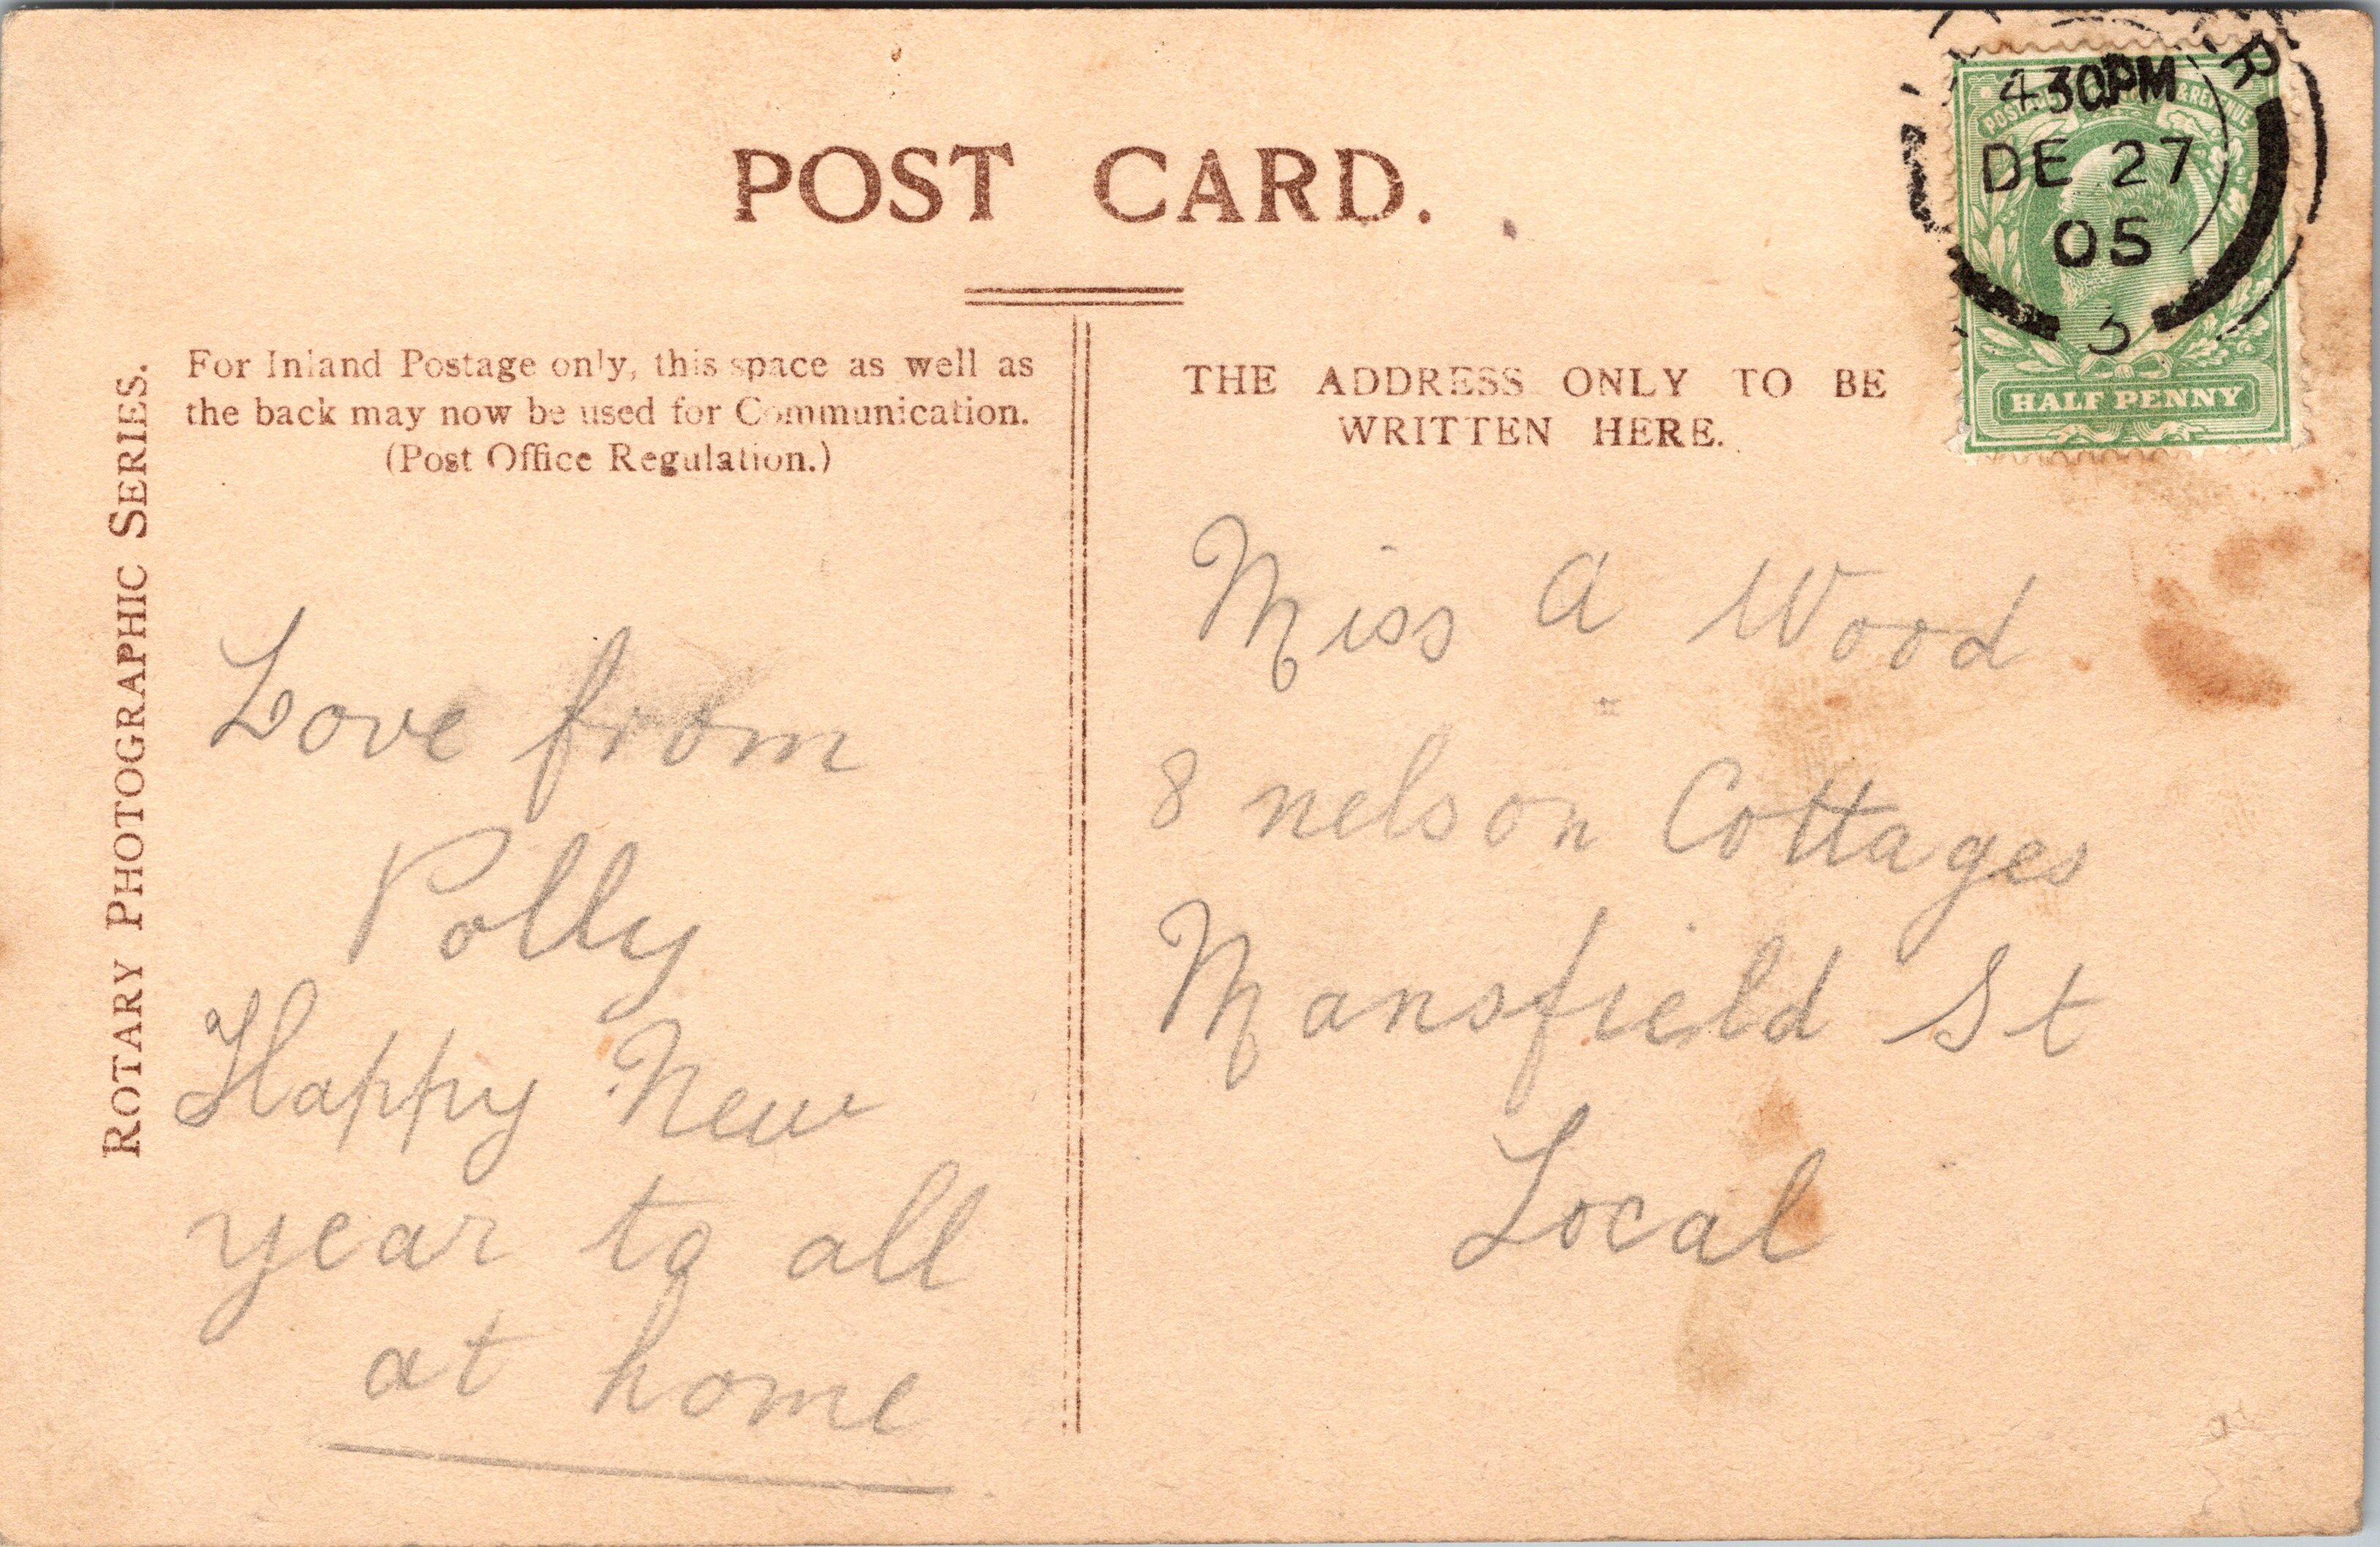 POST CARD.
For Inland Postage only, this space as well as
the back may now be used for Communication.
(Post Office Regulation.)
ROTARY PHOTOGRAPHIC SERIES.
Love from
Polly
Happy New
year to all
at home
THE ADDRESS ONLY TO BE
WRITTEN HERE.
Miss A Wood
8 nelson Cottages
Mansfield St
Local
R
4.30PM
DE 27
05
3
POSTAGE & REVENUE
HALF PENNY